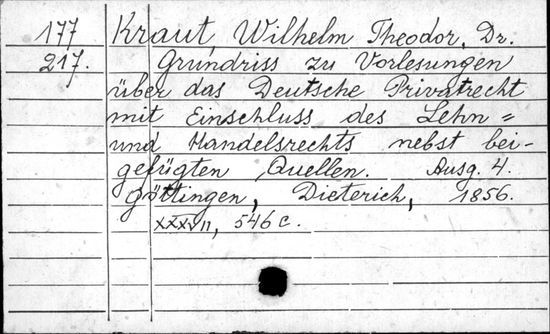 177 Kraut, Wilhelm Theodor, Dr.
217. Grundriss zu Vorlesungen
über das Deutsche Privatrecht
mit Einschluss des Lehn=
und Handelsrechts nebst bei-
gefügten Quellen. Ausg. 4.
Göttingen, Dieterich, 1856.
XXXVII, 546 c.